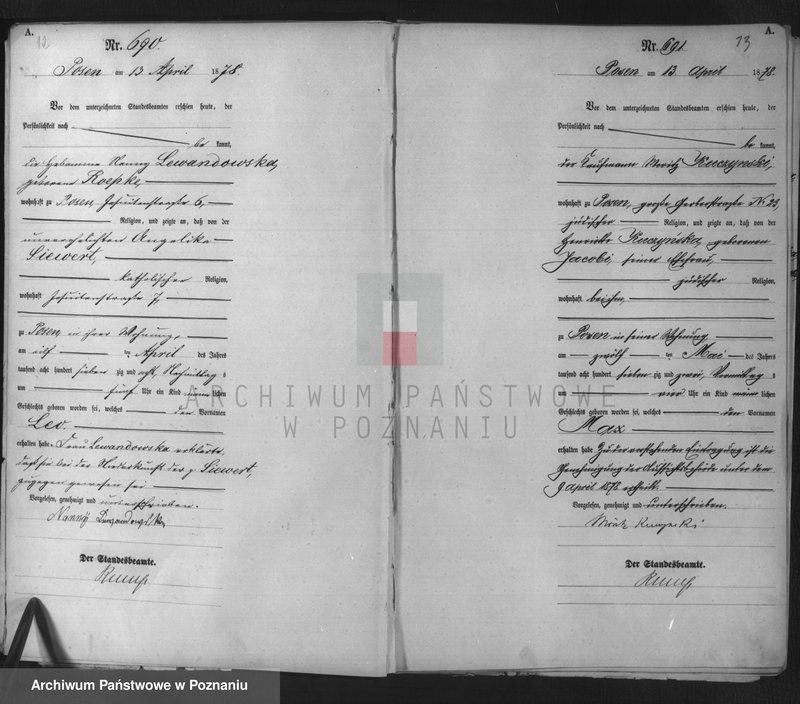 A.
12
Nr. 690.
Posen am 13 April 1878.
Vor dem unterzeichneten Standesbeamten erschien heute, der
Persönlichkeit nach
be kannt,
die Hebamme Nanny Lewandowska,
geborene Roepke,
wohnhaft zu Posen Jesuitenstraße 6,
Religion, und zeigte an, daß von der
unverehelichten Angelika
Siewert,
katholischer Religion,
wohnhaft Jesuitenstraße 7,
zu Posen in ihrer Wohnung,
am elf ten April des Jahres
tausend acht hundert sieben zig und acht, Nachmittag s
um fünf Uhr ein Kind männ lichen
Geschlechts geboren worden sei, welches den Vornamen
Leo
erhalten habe. Frau Lewandowska erklärte,
daß sie bei der Niederkunft der p. Siewert,
zugegen gewesen sei
Vorgelesen, genehmigt und unterschrieben.
Nanny Lewandowska,
Der Standesbeamte.
A.
13
Nr. 691.
Posen am 13 April 1878.
Vor dem unterzeichneten Standesbeamten erschien heute, der
Persönlichkeit nach
be kannt,
der Kaufmann Moritz Kuczynski,
wohnhaft zu Posen, große Gerberstraße No 23
jüdischer Religion, und zeigte an, daß von der
Henriette Kuczyńska, geborenen
Jacobi, seiner Ehefrau,
jüdischer Religion,
wohnhaft bei ihm,
zu Posen in seiner Wohnung
am zwölf ten Mai des Jahres
tausend acht hundert sieben zig und zwei, Vormittag s
um vier Uhr ein Kind männ lichen
Geschlechts geboren worden sei, welches den Vornamen
Max
erhalten habe. Zu der vorstehenden Eintragung ist die
Genehmigung der Aufsichtsbehörde unter dem
9 April 1878 ertheilt.
Vorgelesen, genehmigt und unterschrieben.
Moritz Kuczynski
Der Standesbeamte.
ARCHIWUM PAŃSTWOWE
W POZNANIU
Archiwum Państwowe w Poznaniu